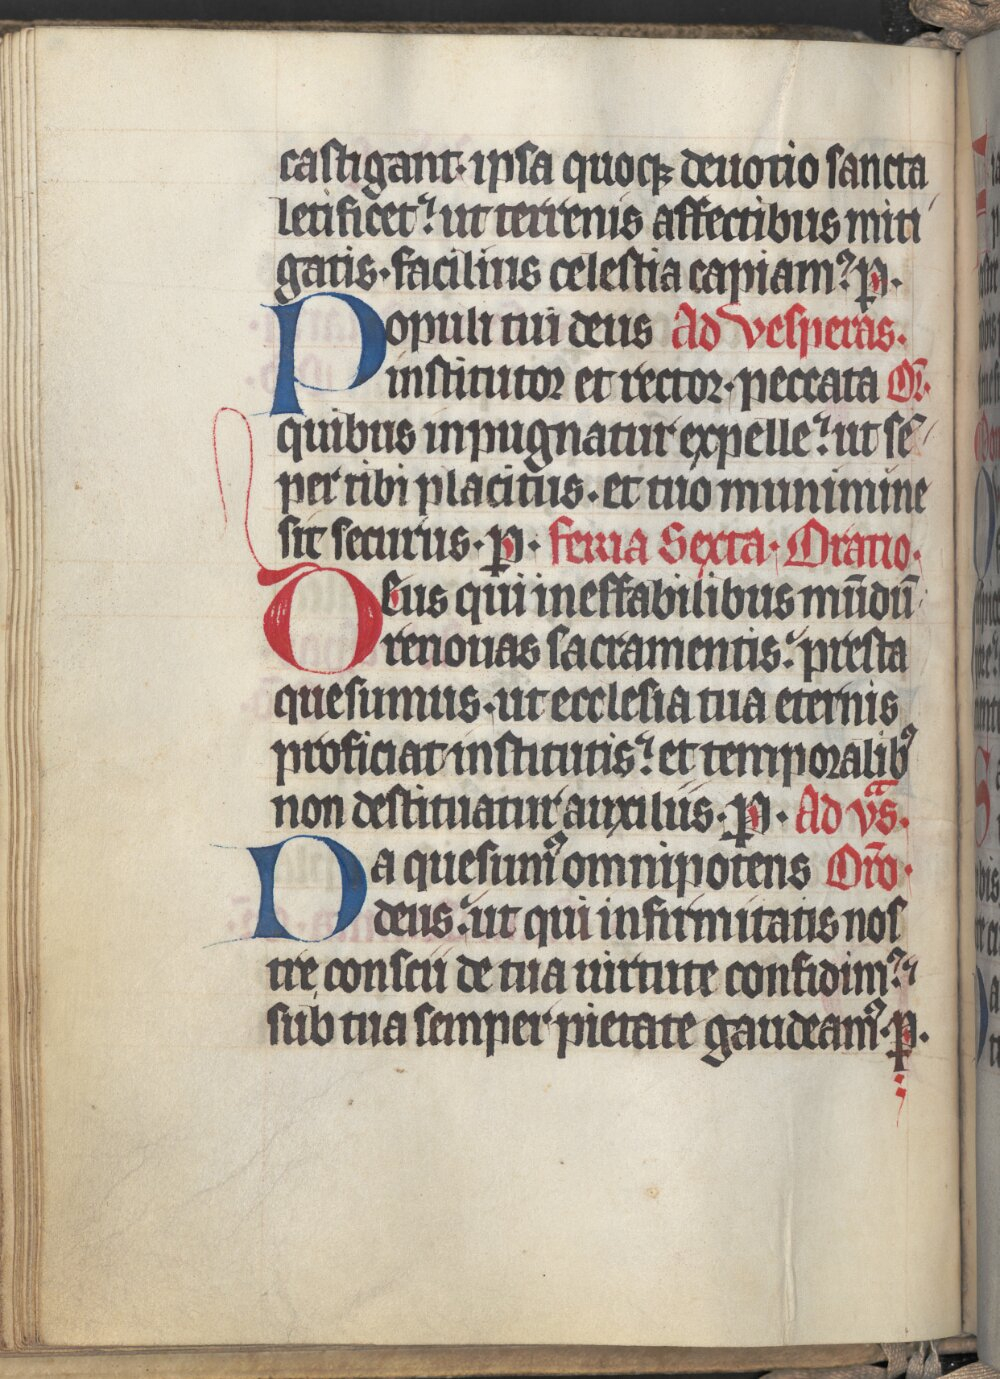 castigant · ipsa quoqꝫ deuotio sancta
letificet ut terrenis affectibus miti
gatis · facilius celestia capiamꝰ p̲ ·
Populi tui deus Ad vesperas ·
institutor et rector · peccata Or̄ ·
quibus inpugnatur expelle ut sē
per tibi placitus · et tuo munimine
sit securus · p̲ · feria Sexta · Oratio ·
Deus qui ineffabilibus mūdū
renouas sacramentis presta
quesumus · ut ecclesia tua eternis
proficiat institutis et temporalibꝰ
non destituatur auxiliis · p̲ · Ad vᵃs ·
Da quesumꝰ omnipotens Oro̅ ·
deus ut qui infirmitatis nos
tre conscii de tua uirtute confidimꝰ
sub tua semper pietate gaudeamꝰ · p̲ ·